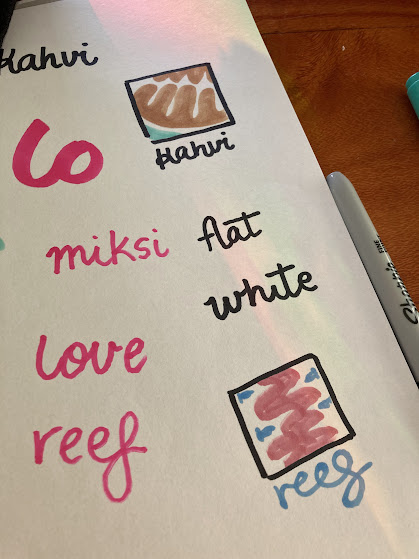 Kahvi
Kahvi
lo
miksi
flat
white
love
reef
reef
Sharpie